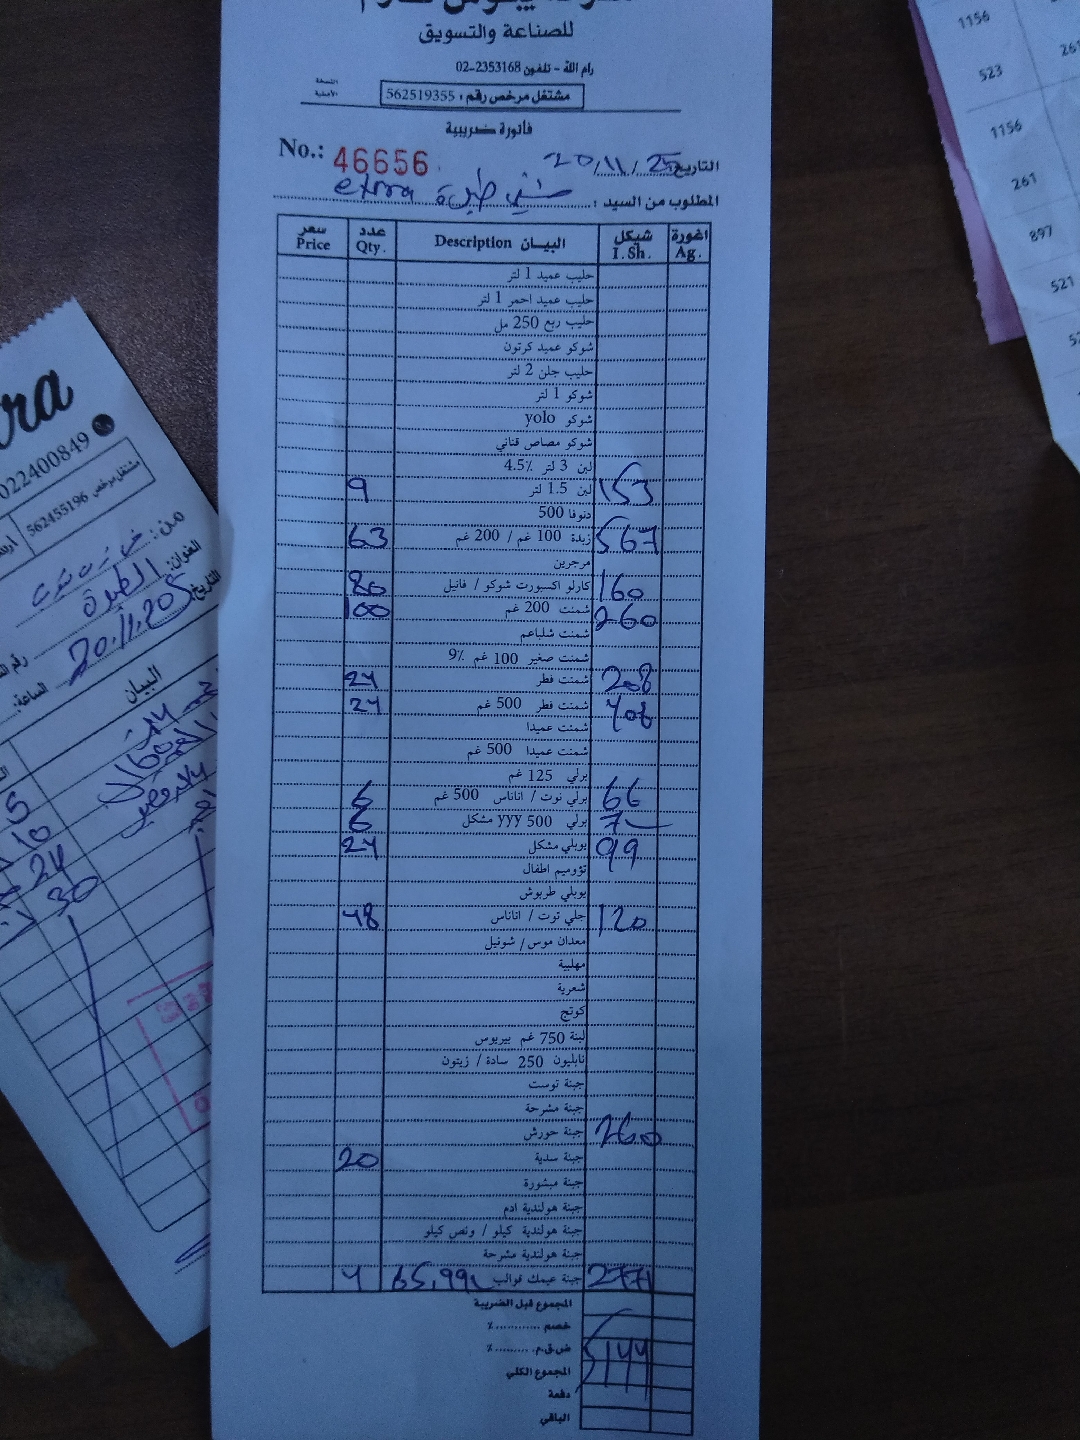 للصناعة والتسويق
رام الله - تلفون 2353168-02
مشتغل مرخص رقم: 562519355
النسخة الأصلية
فاتورة ضريبية
No.: 46656
التاريخ 20/11/25
المطلوب من السيد: extra
سعر Price عدد Qty. البيـــان Description شيكل I.Sh. اغورة Ag.
حليب عميد 1 لتر
حليب عميد احمر 1 لتر
حليب ربع 250 مل
شوكو عميد كرتون
حليب جلن 2 لتر
شوكو 1 لتر
شوكو yolo
شوكو مصاص قناني
لبن 3 لتر 4.5٪
9 لبن 1.5 لتر 153
دنوفا 500
63 زبدة 100 غم / 200 غم 567
مرجرين
80 كارلو اكسبورت شوكو / فانيل 160
100 شمنت 200 غم 260
شمنت شلباعم
شمنت صغير 100 غم 9٪
24 شمنت فطر 208
24 شمنت فطر 500 غم 408
شمنت عميدا
شمنت عميدا 500 غم
برلي 125 غم
6 برلي توت / اناناس 500 غم 66
6 برلي 500 yyy مشكل
24 يوبلي مشكل 99
تؤوميم اطفال
يوبلي طربوش
48 جلي توت / اناناس 120
معدان موس / شونيل
مهلبية
شعرية
كوتج
لبنة 750 غم بيريوس
نابليون 250 سادة / زيتون
جبنة توست
جبنة مشرحة
جبنة حورش 260
20 جبنة سدية
جبنة مبشورة
جبنة هولندية ادم
جبنة هولندية كيلو / ونص كيلو
جبنة هولندية مشرحة
4 جبنة عيمك قوالب 65,99 2771
المجموع قبل الضريبة
خصم ............ ٪
ض.ق.م. .......... ٪
المجموع الكلي 5144
دفعة
الباقي
ra
022400849
مشتغل مرخص 562455196
من:
العنوان: الطيرة
التاريخ 20.11.205
الساعة:
البيان
5
10
24
30
1156
523
1156
261
897
521